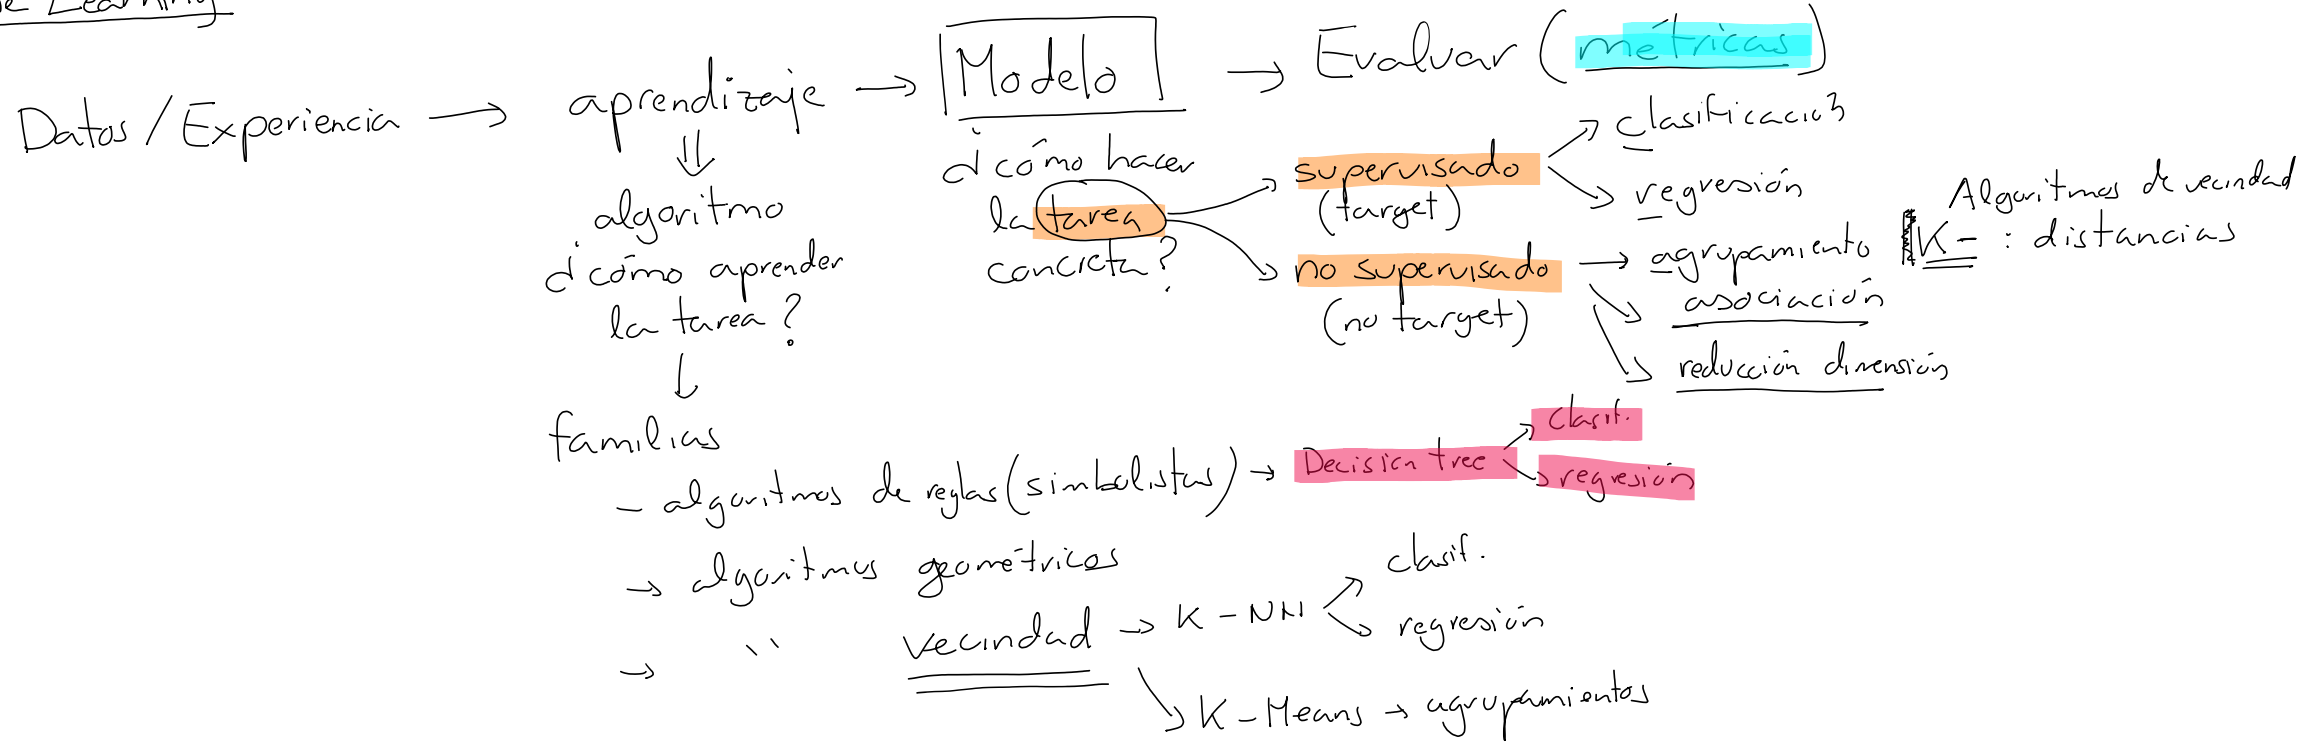 Learning
Datos / Experiencia → aprendizaje → Modelo → Evaluar (métricas)
algoritmo
¿cómo aprender
la tarea?
familias
¿cómo hacer
la tarea
concreta?
supervisado
(target)
clasificación
regresión
no supervisado
(no target)
agrupamiento
asociación
reducción dimensión
Algoritmos de vecindad
K- : distancias
- algoritmos de reglas (simbolistas) → Decision tree
clasif.
regresión
→ algoritmos geométricos
→ '' vecindad → K-NN
clasif.
regresión
K-Means → agrupamientos